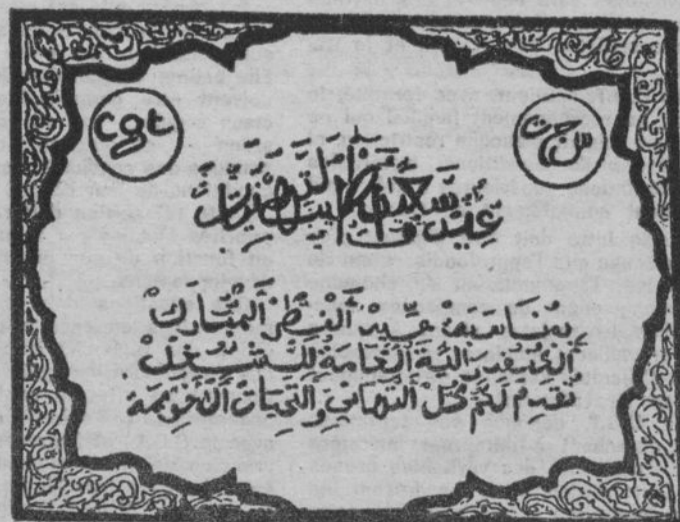 cgt س ج ت
عيد سعيد
بمناسبة عيد الفطر المبارك
الكنفدرالية العامة للشغل
تقدم لكم كل التهاني والتحيات الأخوية